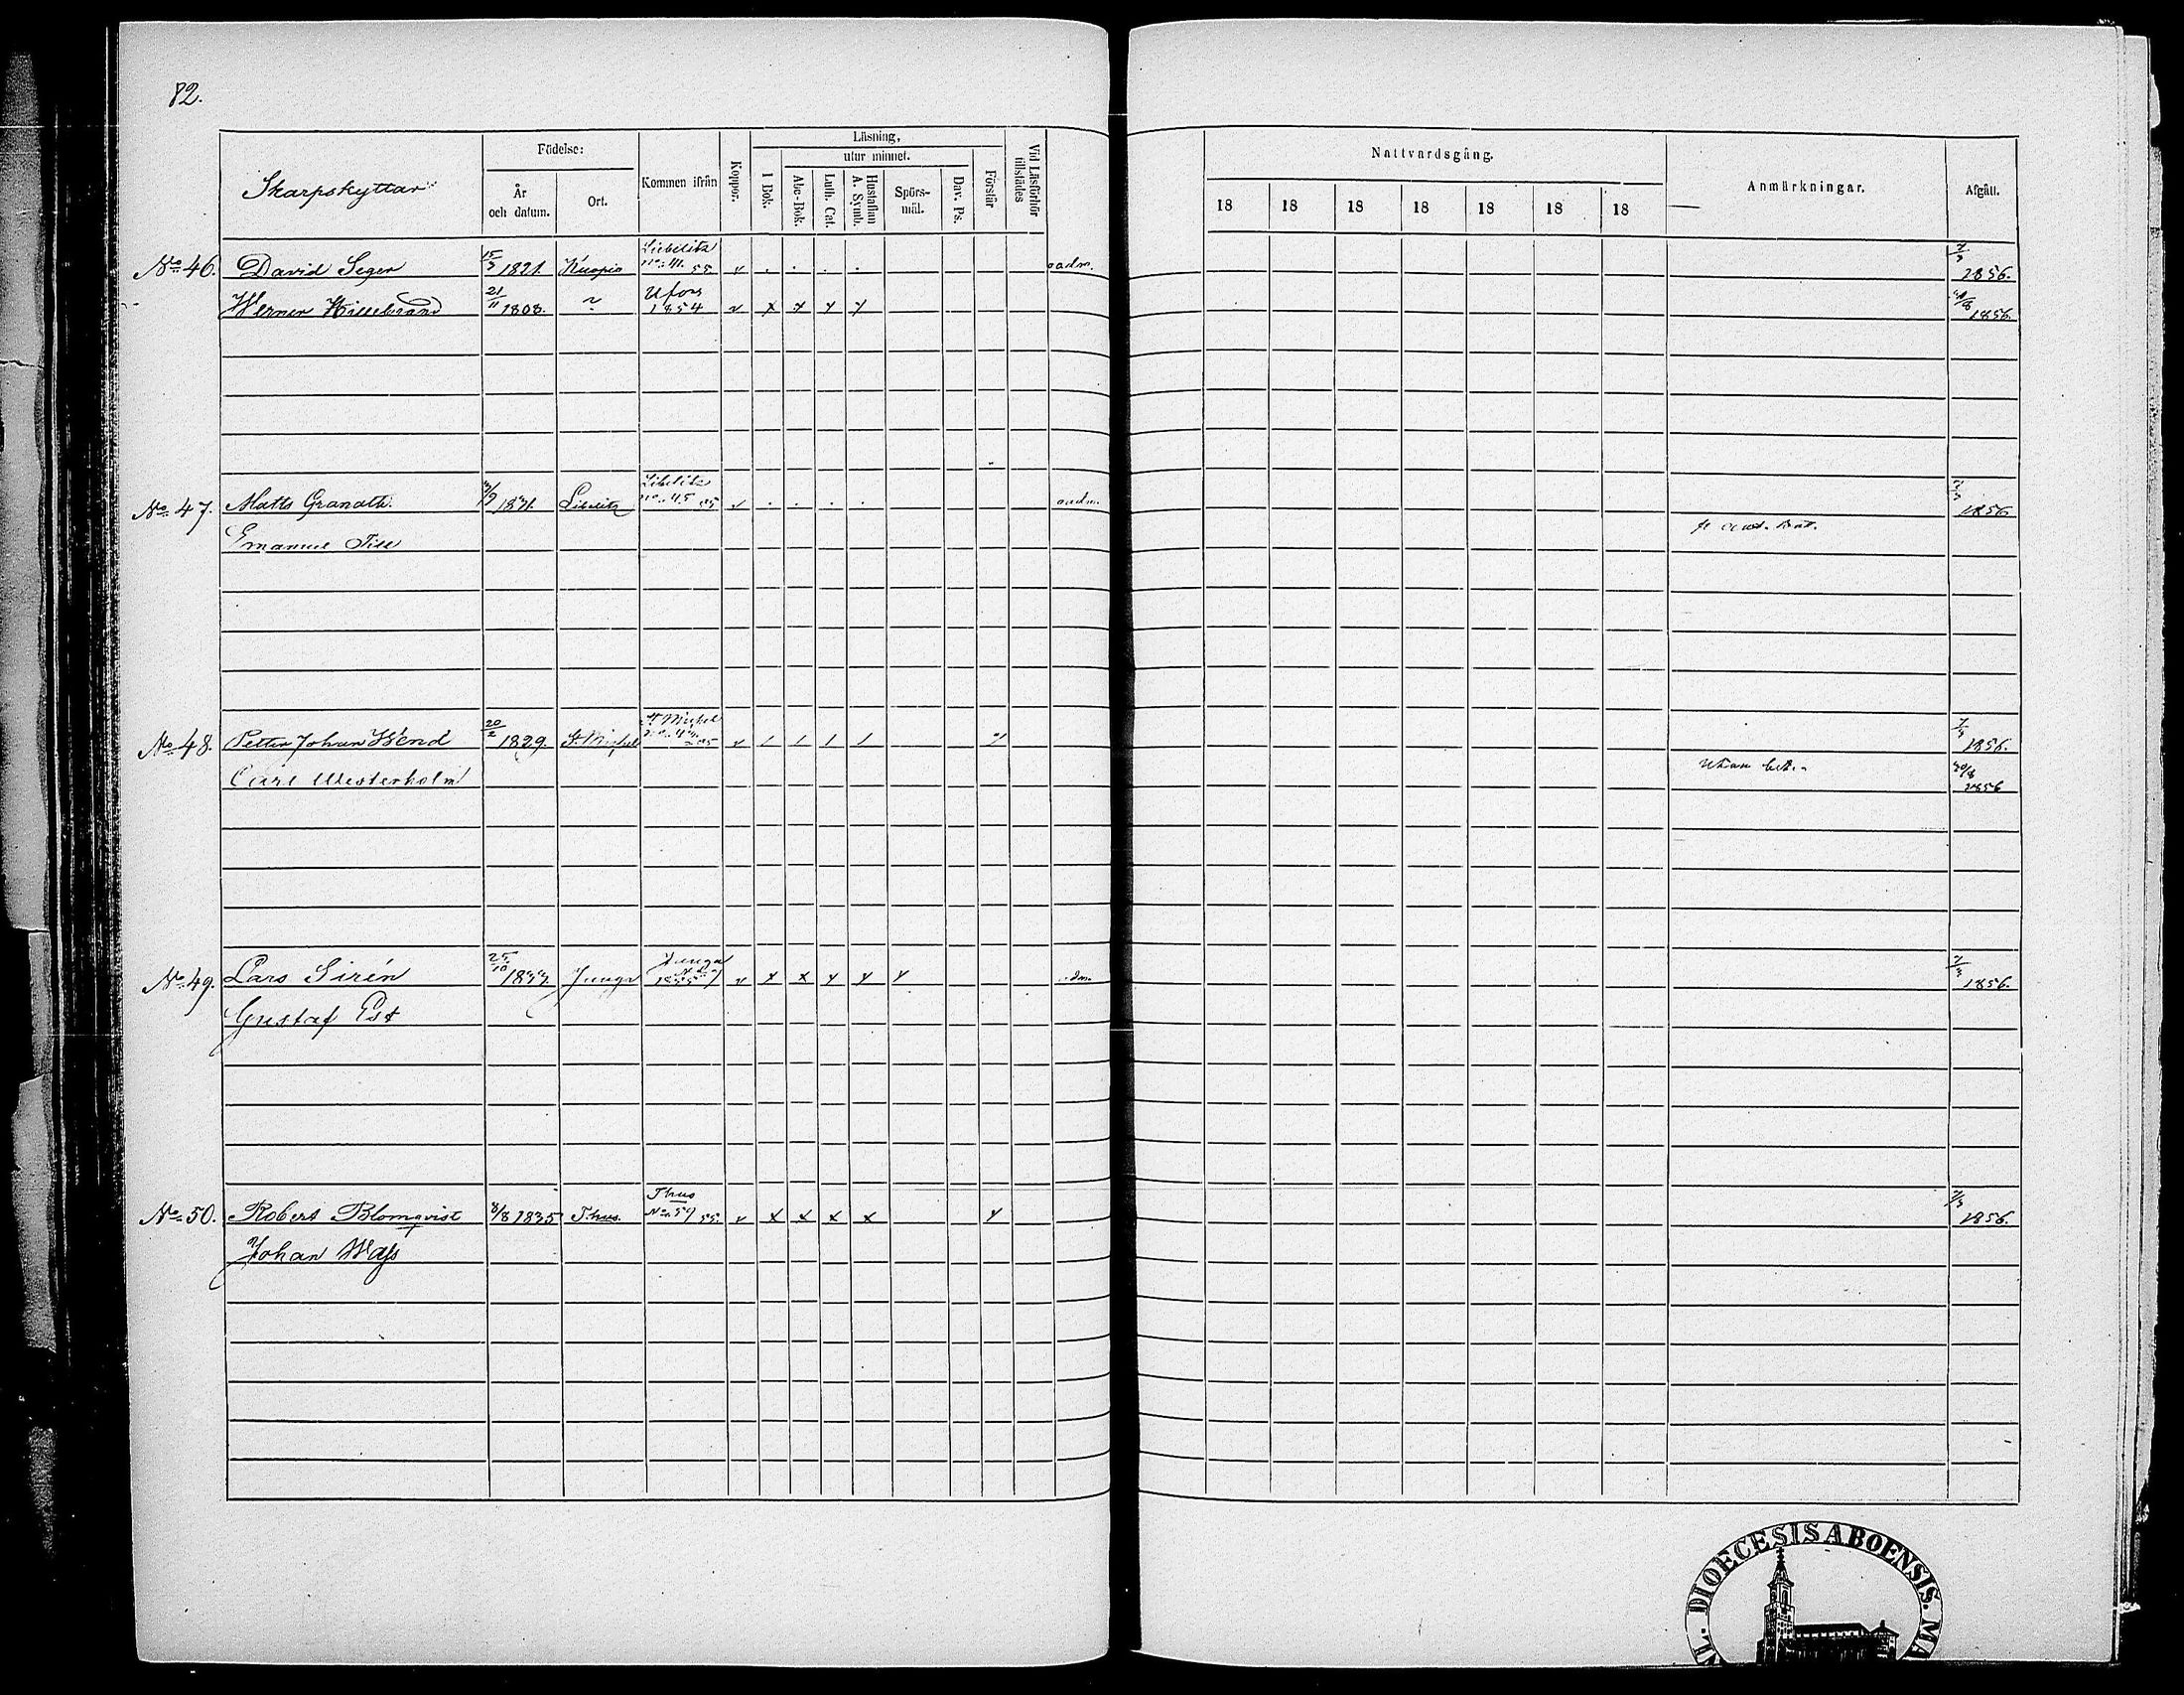 82.
Skarpskyttar
Födelse:
År och datum.
Ort.
Kommen ifrån
Koppor.
Läsning,
utur minnet.
I Bok.
Abc-Bok.
Luth. Cat.
Hustaflan A. Symb.
Spörs-mål.
Dav. Ps.
Förstår
Vid Läsförhör tillstädes
Nattvardsgång.
18 18 18 18 18 18 18
Anmärkningar.
Afgått.
No 46. David Seger 15/3 1821. Kuopio Liebelitz No 41. 55 v adm. 7/3 1856.
Werner Hillebrand 21/11 1808. Ufors 1854 v x x x x 1856.
No 47. Matts Granath. Libelitz Libelitz No 45 55 v adm. 7/3 1856
Emanuel Till
No 48. Petter Johan Wend 20/2 1829. St. Michel St. Michel v / / / / 7/3 1856.
Carl Westerholm 1856
No 49. Lars Sirén 25/10 Junga Junga 1855 v x x x x x adm. 7/3 1856.
Gustaf Pst
No 50. Robert Blomqvist 8/8 1835 T:hus. T:hus No 59 55. v x x x x x 7/3 1856.
Johan Wass
DIOECESIS ABOENSIS. M